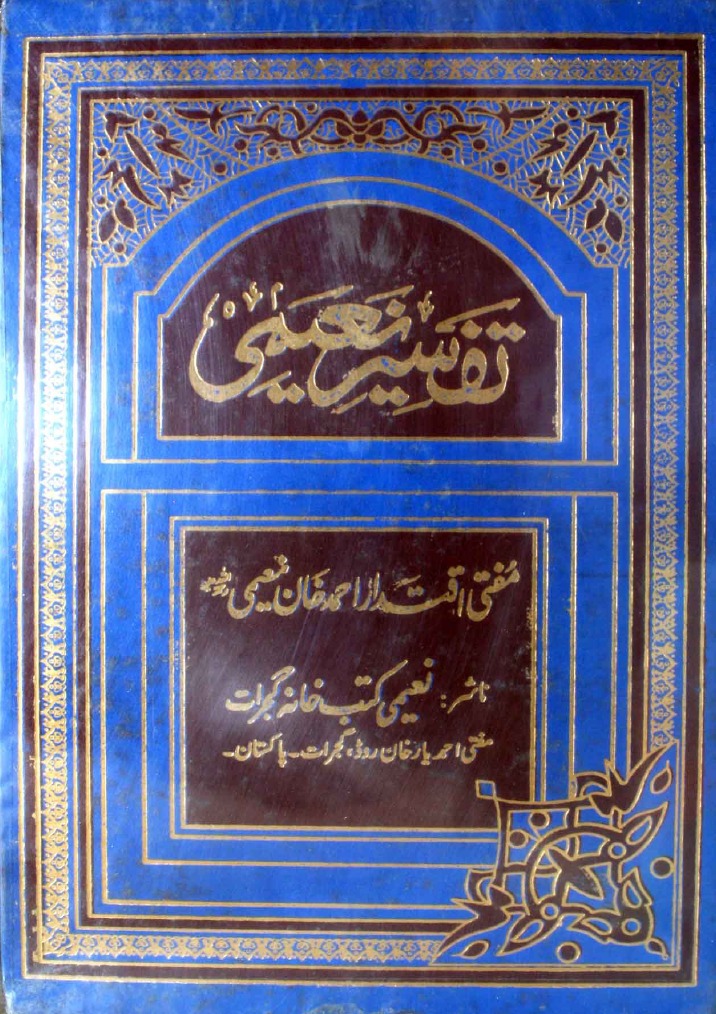 تفسیر نعیمی
مفتی اقتدار احمد خان نعیمی
ناشر: نعیمی کتب خانہ گجرات
مفتی احمد یار خان روڈ، گجرات۔ پاکستان۔